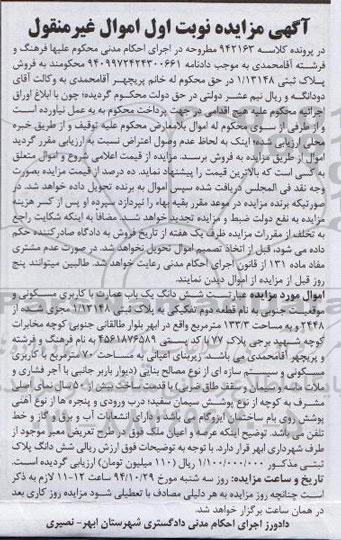 آگهی مزایده نوبت اول اموال غیرمنقول
در پرونده کلاسه ۹۴۲۱۶۳ مطروحه در اجرای احکام مدنی محکوم علیها فرهنگ و
فرشته آقامحمدی به موجب دادنامه ۹۴۰۹۹۷۲۴۲۴۳۰۰۶۶۱ محکومند به فروش
پلاک ثبتی ۱/۱۳۱۴۸ در حق محکوم له خانم پریچهر آقامحمدی به وکالت آقای
دودانگه و ریال نیم عشر دولتی در حق دولت محکوم گردیده؛ چون با ابلاغ اوراق
اجرائیه محکوم علیه هیچ اقدامی در جهت پرداخت محکوم به به عمل نیاورده است
و از طرفی از سوی محکوم له اموال بلامعارض محکوم علیه توقیف و از طریق خبره
محلی ارزیابی شده؛ اینک به لحاظ عدم وصول اعتراض نسبت به ارزیابی مقرر گردید
اموال از طریق مزایده به فروش برسند. مزایده از قیمت اعلامی شروع و اموال متعلق
به کسی است که بالاترین قیمت را پیشنهاد نماید. ده درصد از قیمت مزایده بصورت
وجه نقد فی المجلس دریافت شده سپس اموال به برنده تحویل داده خواهد شد. در
صورتیکه برنده مزایده در موعد مقرر بقیه بهاء را نپردازد سپرده او پس از کسر هزینه
مزایده به نفع دولت ضبط و مزایده تجدید خواهد شد مضافا به اینکه شکایت راجع
به تخلف از مقررات مزایده ظرف یک هفته از تاریخ فروش به دادگاه صادرکننده حکم
داده می شود، قبل از اتخاذ تصمیم اموال تحویل نخواهد شد. در صورت عدم مشتری
مفاد ماده ۱۳۱ از قانون اجرای احکام مدنی رعایت خواهد شد. طالبین میتوانند پنج
روز قبل از مزایده از اموال دیدن نمایند.
اموال مورد مزایده عبارتست شش دانگ یک باب عمارت با کاربری مسکونی و
موقعیت جنوبی به نام قطعه دوم تفکیکی به پلاک ثبتی ۱/۱۳۱۴۸ مجزی شده از
۲۴۴۸ و به مساحت ۱۳۳/۳ مترمربع واقع در ابهر بلوار طالقانی جنوبی کوچه مخابرات
کوچه شهید برجی پلاک ۷۷ با کد پستی ۴۵۶۱۸۷۶۵۸۹ به نام فرهنگ و فرشته
و پریچهر آقامحمدی می باشد. زیربنای اعیانی به مساحت ۷۰ مترمربع با کاربری
مسکونی و سیستم سازه ای از نوع مصالح بنایی (دیوار باربر جانبی با آجر فشاری و
ملات ماسه سیمان و سقف طاق ضربی) با قدمت ساخت بیش از ۵۰ سال نمای اصلی
مشرف به کوچه از نوع پوشش سیمان سفید؛ درب ورودی و پنجره ها از نوع آهنی
پوشش روی بام ساختمان ایزوگام می باشد و دارای انشعابات آب و برق و گاز و خط
تلفن می باشد. توضیح اینکه عرصه و اعیان ملک فوق در طرح تعریض معبر موجود از
طرف شهرداری ابهر قرار دارد. با توجه به توضیحات فوق ارزش ریالی شش دانگ پلاک
ثبتی مذکور ۱/۱۰۰/۰۰۰/۰۰۰ ریال (۱۱۰ میلیون تومان) ارزیابی گردیده است.
تاریخ و ساعت مزایده: روز سه شنبه مورخ ۹۴/۱۰/۲۹ ساعت ۱۲-۱۱ لازم به ذکر
است چنانچه روز مزایده به هر دلیلی مصادف با تعطیلی شود مزایده روز کاری بعد
در همان ساعت برگزار خواهد شد.
دادورز اجرای احکام مدنی دادگستری شهرستان ابهر- نصیری